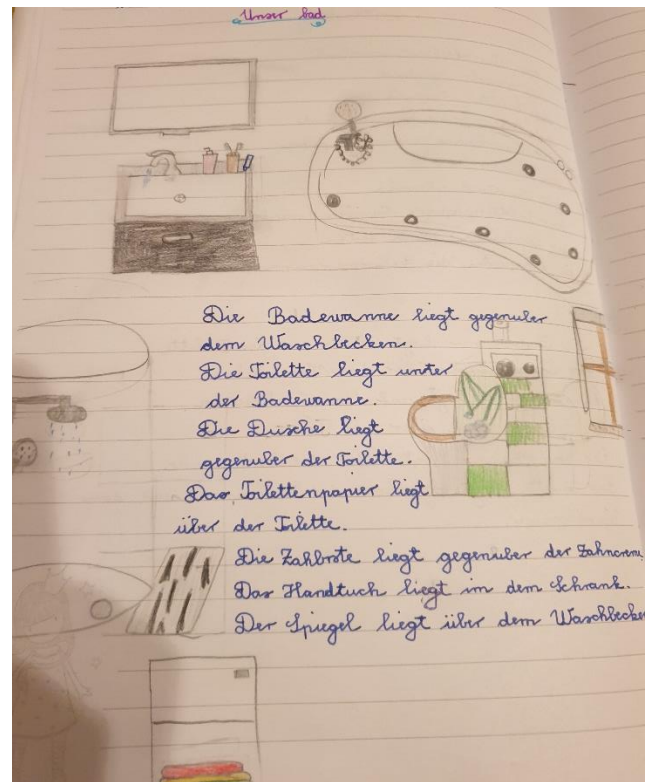 Unser bad
Die Badewanne liegt gegenuber
dem Waschbecken.
Die Toilette liegt unter
der Badewanne.
Die Dusche liegt
gegenuber der Toilette.
Das Toilettenpapier liegt
über der Toilette.
Die Zahbrste liegt gegenuber der Zahncreme.
Das Handtuch liegt im dem Schrank.
Der Spiegel liegt über dem Waschbecken